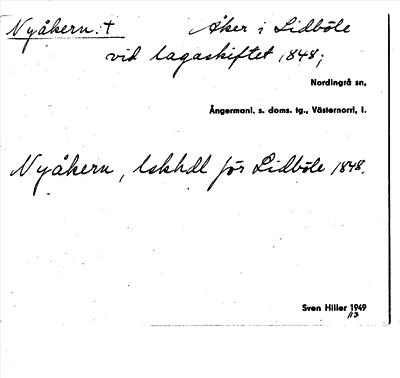 Nyåkern: † Åker i Lidböle
vid lagaskiftet 1848;
Nordingrå sn,
Ångermanl. s. doms. tg., Västernorrl, l.
Nyåkern, lskhdl för Lidböle 1848.
Sven Hiller 1949
113